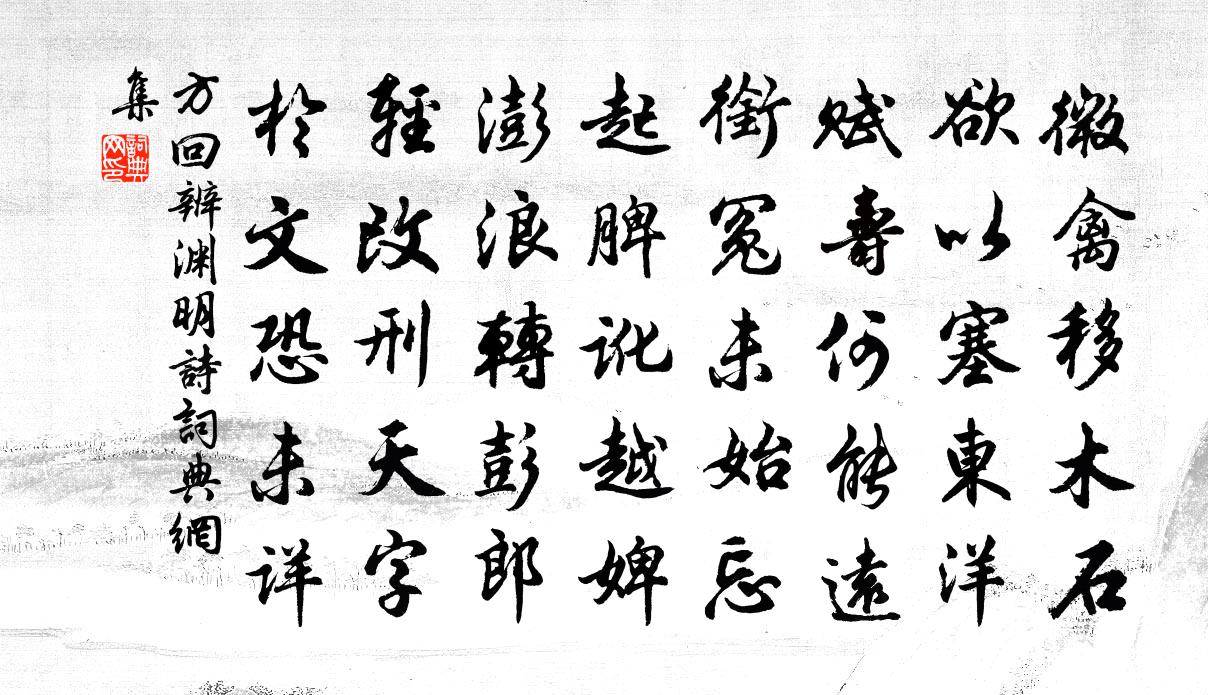 微禽移木石
欲以塞東洋
賦壽何能遠
銜冤未始忘
起脾訛越婢
澎浪轉彭郎
輕改刑天字
於文恐未詳
方回辨淵明詩詞典網
集
詞典
网印